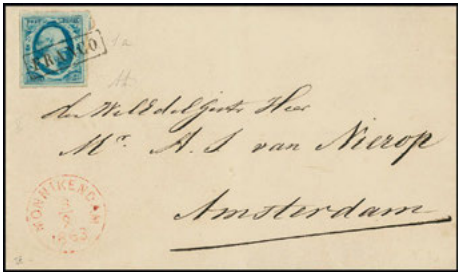 FRANCO
1a
den WelEdelGestr Heer
Mr. A. S. van Nierop
Amsterdam
MONNIKENDAM
1863